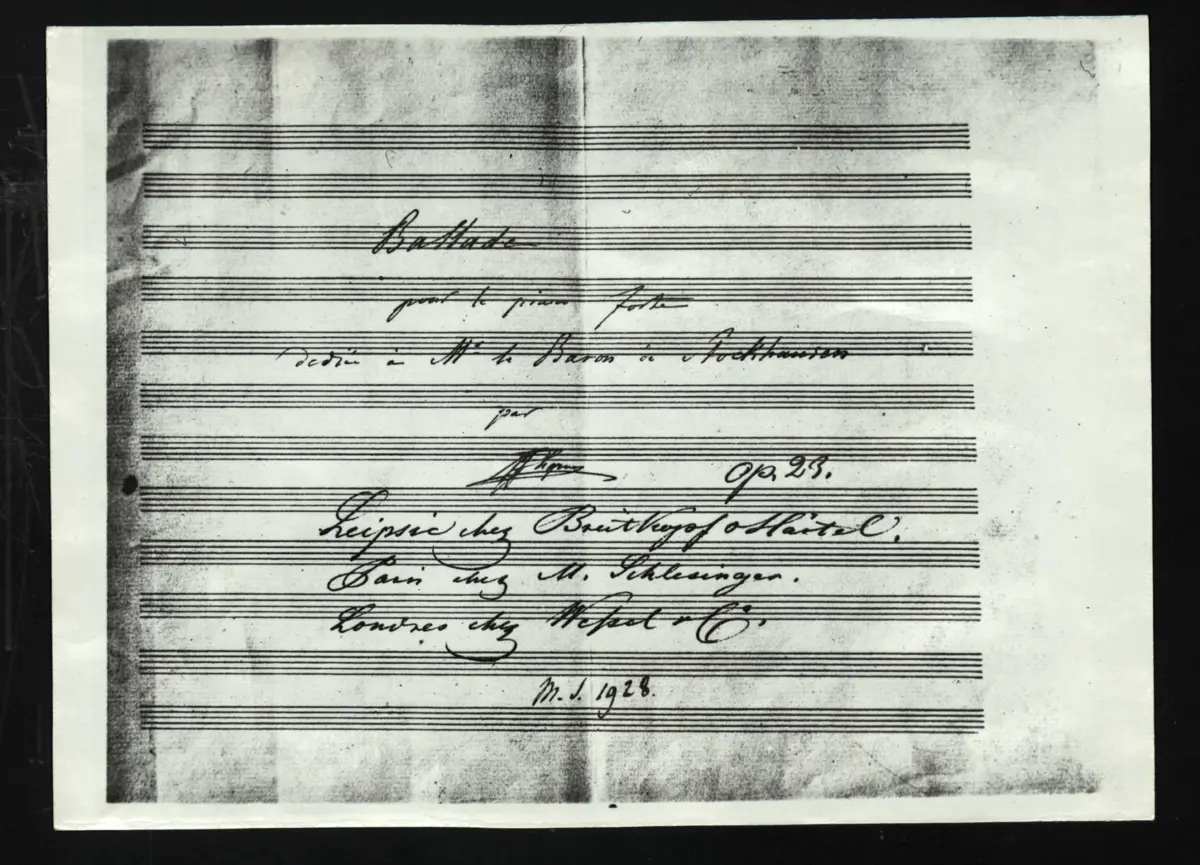 Ballade
pour le piano forte
dediée à Mr le Baron de Stockhausen
par
FChopin
op. 23.
Leipsic chez Breitkopf & Härtel.
Paris chez M. Schlesinger.
Londres chez Wessel & Co.
M. S. 1928.